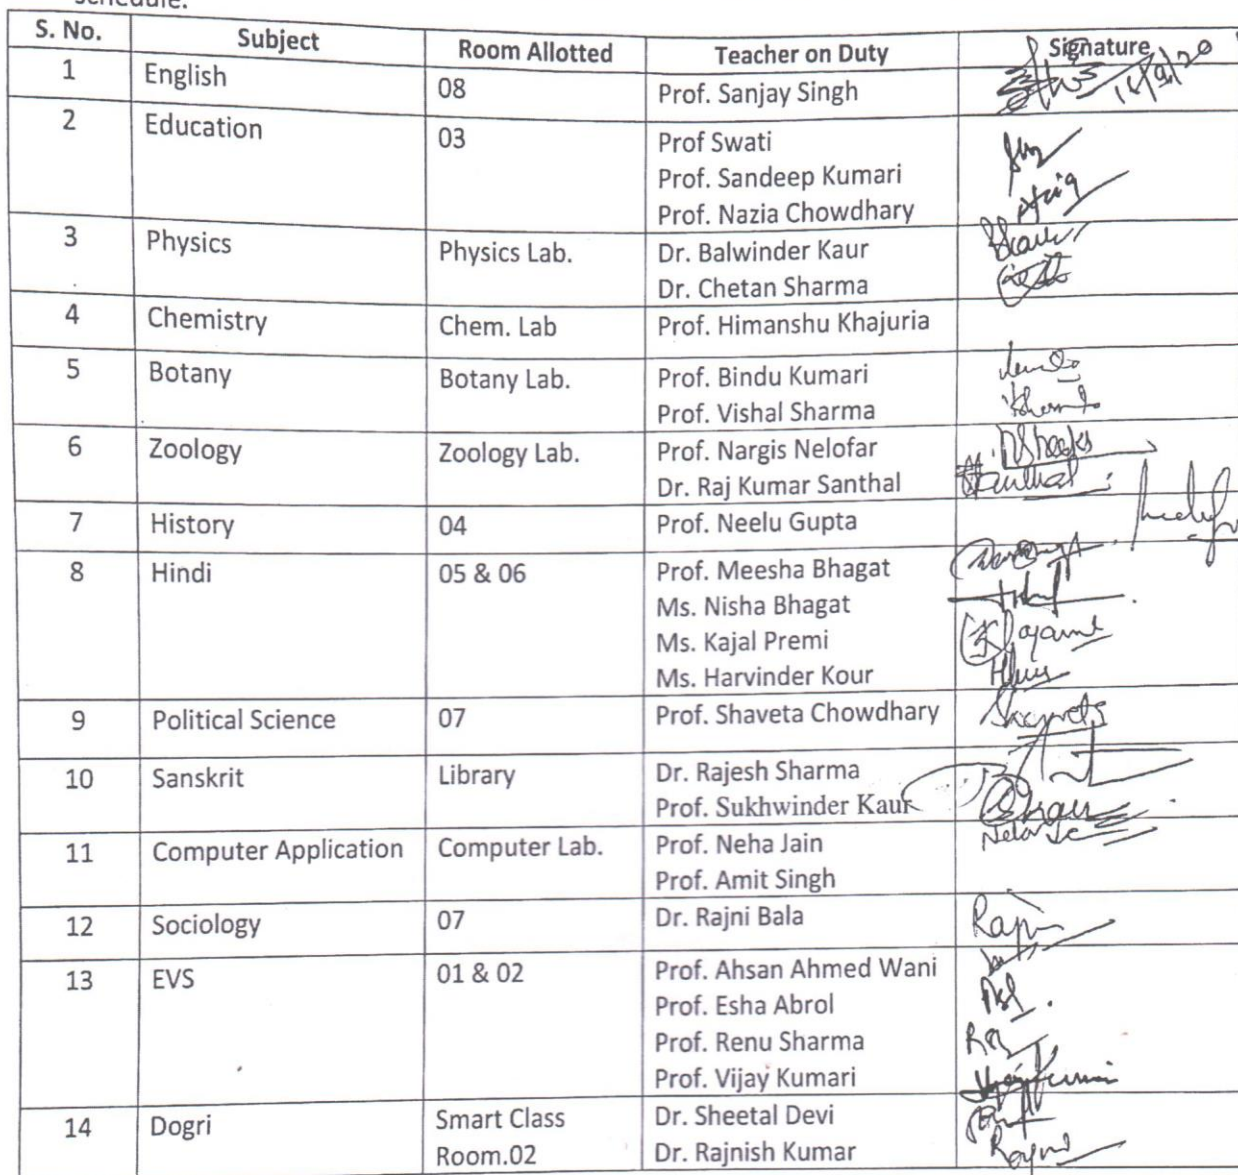 schedule.
S. No. Subject Room Allotted Teacher on Duty Signature
1 English 08 Prof. Sanjay Singh
2 Education 03 Prof Swati
Prof. Sandeep Kumari
Prof. Nazia Chowdhary
3 Physics Physics Lab. Dr. Balwinder Kaur
Dr. Chetan Sharma
4 Chemistry Chem. Lab Prof. Himanshu Khajuria
5 Botany Botany Lab. Prof. Bindu Kumari
Prof. Vishal Sharma
6 Zoology Zoology Lab. Prof. Nargis Nelofar
Dr. Raj Kumar Santhal
7 History 04 Prof. Neelu Gupta
8 Hindi 05 & 06 Prof. Meesha Bhagat
Ms. Nisha Bhagat
Ms. Kajal Premi
Ms. Harvinder Kour
9 Political Science 07 Prof. Shaveta Chowdhary
10 Sanskrit Library Dr. Rajesh Sharma
Prof. Sukhwinder Kaur
11 Computer Application Computer Lab. Prof. Neha Jain
Prof. Amit Singh
12 Sociology 07 Dr. Rajni Bala
13 EVS 01 & 02 Prof. Ahsan Ahmed Wani
Prof. Esha Abrol
Prof. Renu Sharma
Prof. Vijay Kumari
14 Dogri Smart Class Dr. Sheetal Devi
Room.02 Dr. Rajnish Kumar